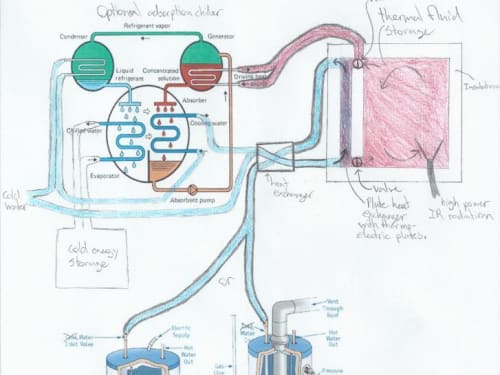 Optional adsorption chiller
Refrigerant vapor
Condenser
Generator
Liquid
refrigerant
Concentrated
solution
Driving heat
Absorber
Chilled water
Cooling water
Evaporator
Absorbent pump
cold
water
cold energy
storage
heat
exchanger
thermal fluid
storage
Insulation
valve
Plate heat
exchanger
with thermo-
electric plates.
high power
IR radiation
or
Cold Water
Inlet Valve
Electric
Supply
Hot
Water
Out
Vent
Through
Roof
Cold Water
Hot
Water
Out
Gas
Pressure